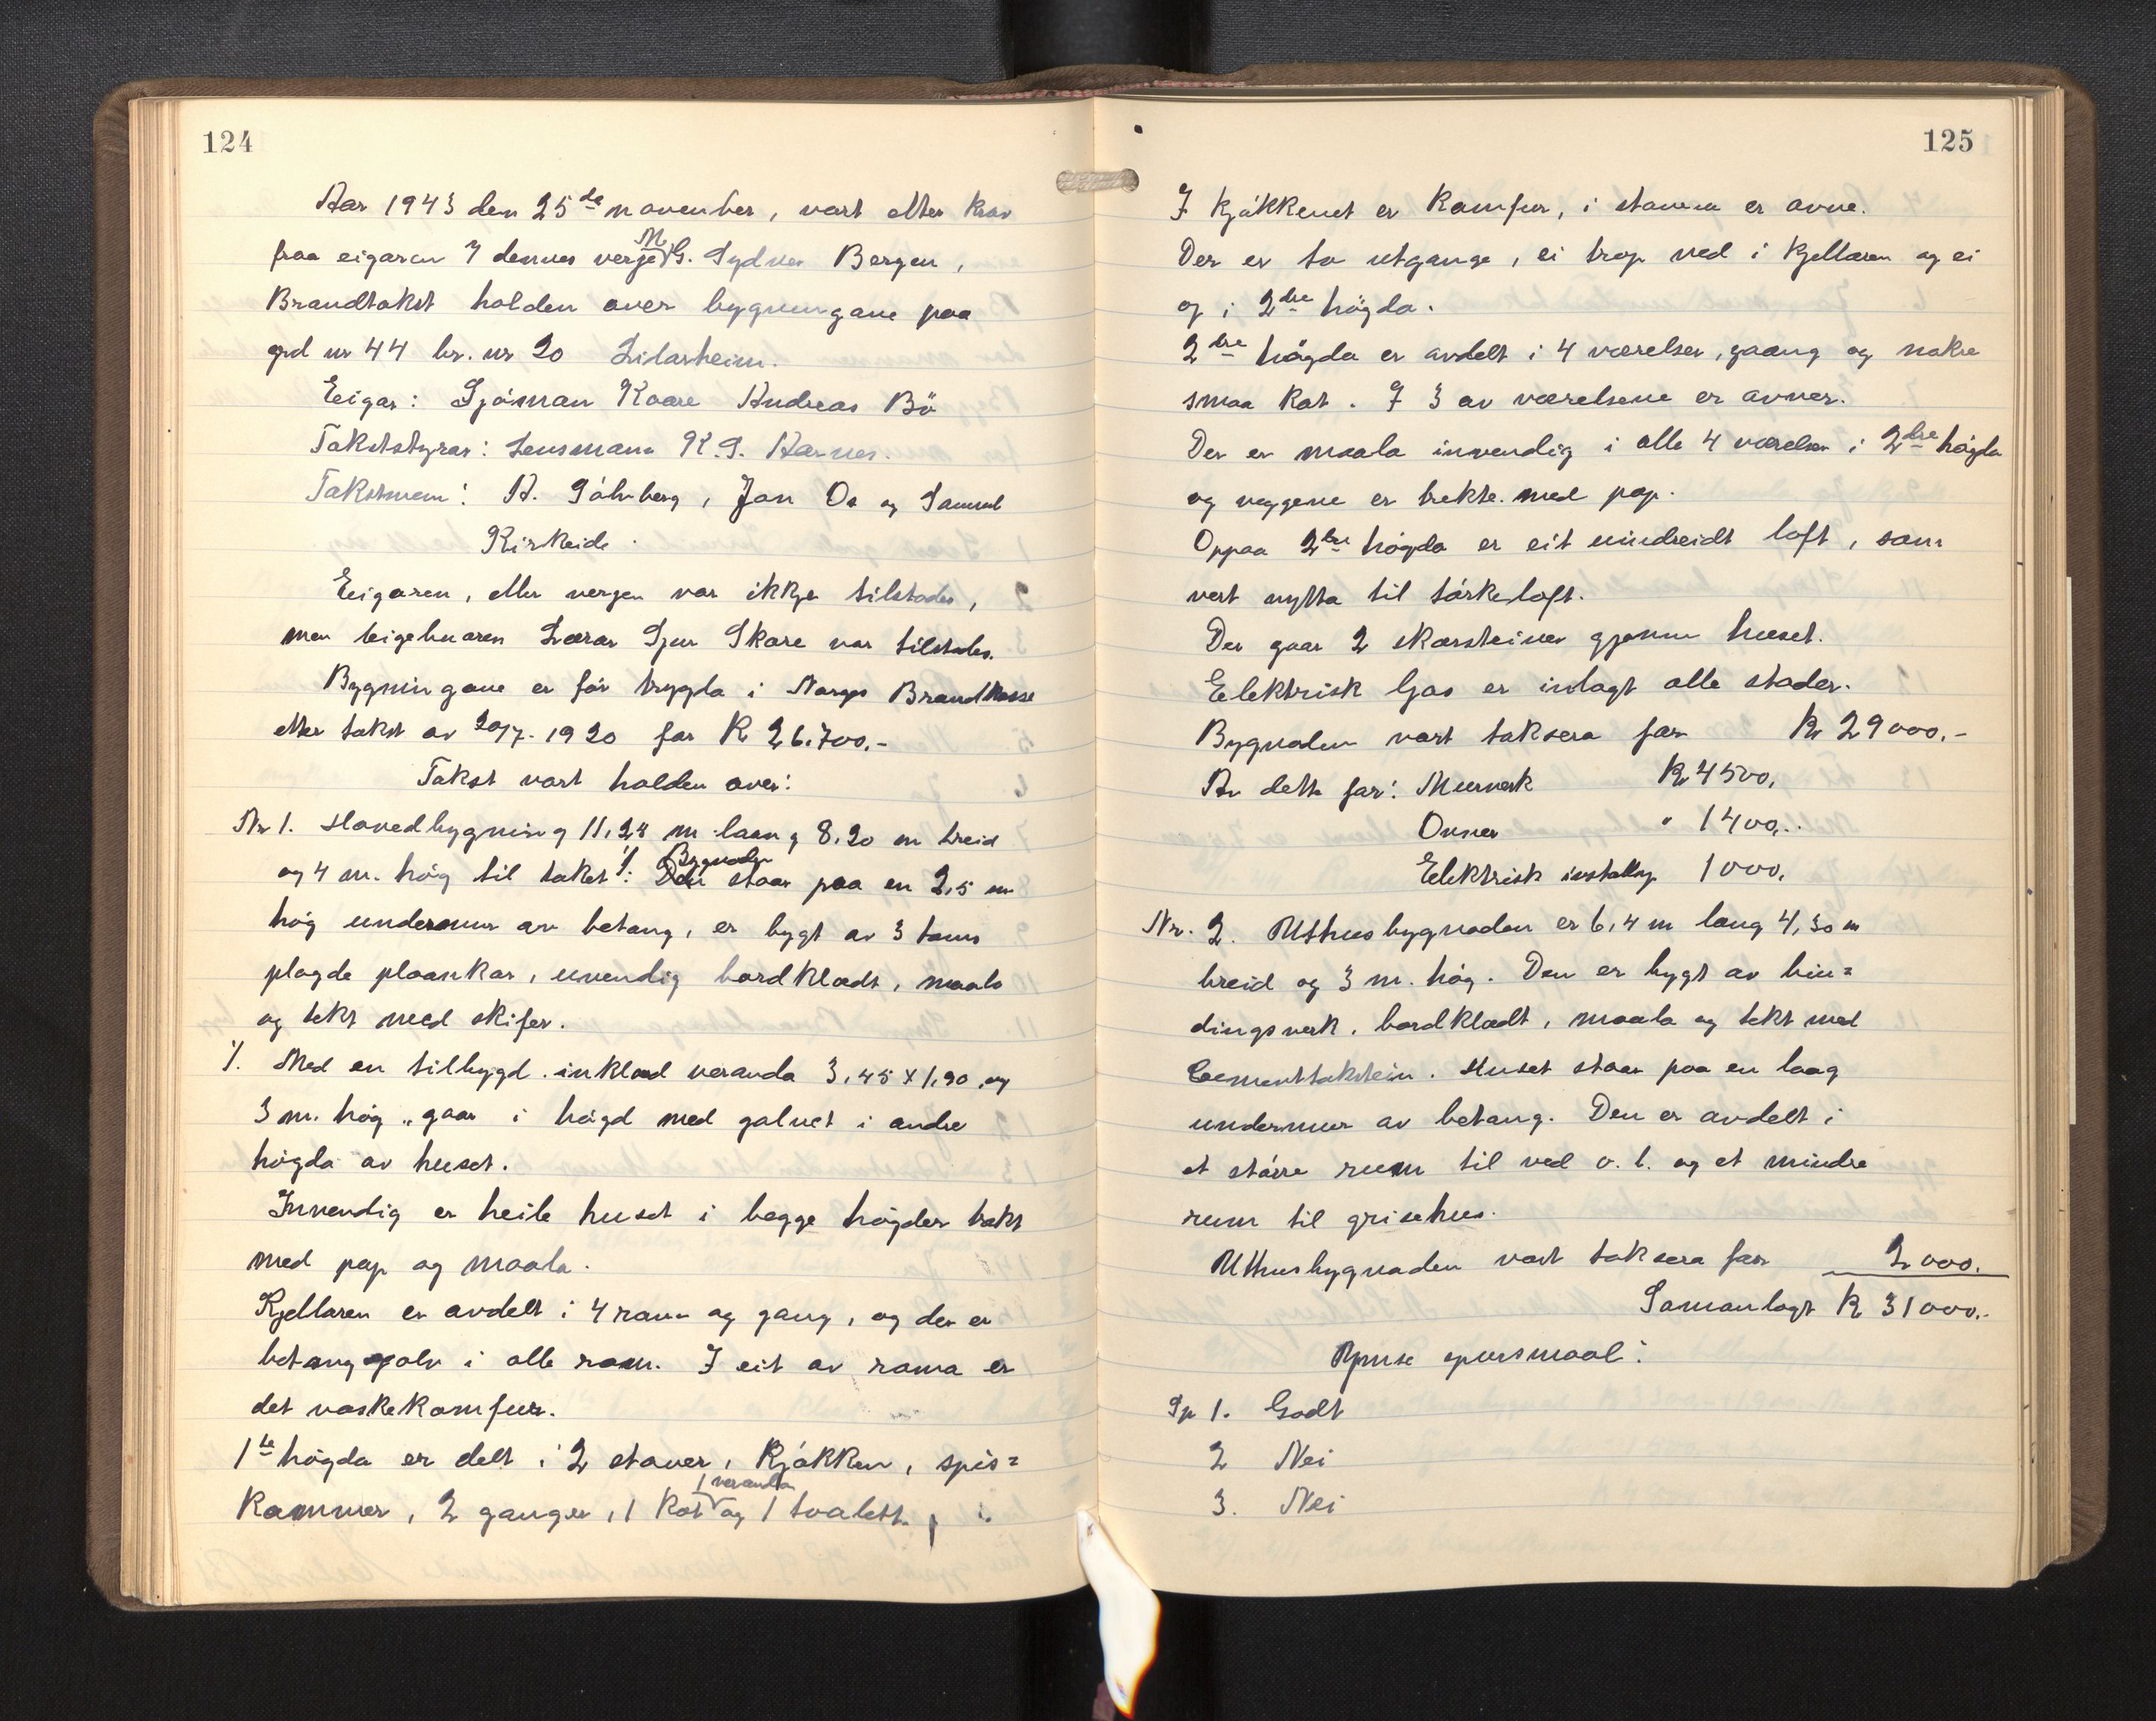 124
Aar 1943 den 25de november, vart etter krav
fraa eigaren / dennes verje M. G. Sydnes Bergen,
Brandtakst halden over bygningane paa
grd nr 44 br. nr 20 Solarheim.
Eigar: Sjöman Kaare Andreas Bö
Takststyrar: Lensmann K. J. Aarnes.
Takstmenn: A. Sölvberg, Jon Os og Samuel
Kirkeide.
Eigaren, eller vergen var ikkje tilstades,
men leigebuaren Lærar Sjur Skare var tilstades.
Bygningane er för trygda i Norges Brandkasse
etter takst av 20/7-1920 for Kr 26.700.-
Takst vart halden over:
Nr 1. Hovedbygning 11,28 m laang 8,20 m breid
og 4 m. hög til taket ⁒. Bygnaden staar paa en 2,5 m
hög undermur av betong, er bygt av 3 toms
plögde plankar, utvendig bordklædt, maala
og tekt med skifer.
⁒. Med en tilbygd innklæd veranda 3,45 x 1,90, og
3 m. hög, gaar i högd med golvet i andre
högda av huset.
Innvendig er heile huset i begge högder trekt
med pap og maala.
Kjellaren er avdelt i 4 rom og gang, og der er
betonggolv i alle rom. I eit av roma er
det vaskekomfur.
1te högda er delt i 2 stover, kjökken, spis=
kammer, 2 ganger, 1 kot 1 veranda og 1 toalett.
125
I kjökkenet er komfur, i stovene er ovne.
Der er to utgange, ei trop ned i kjellaren og ei
op i 2dre högda.
2dre högda er avdelt i 4 værelser, gaang og nokre
smaa kot. I 3 av værelsene er ovner.
Der er maala innvendig i alle 4 værelser i 2dre högda
og veggene er trekte med pap.
Oppaa 2dre högda er eit uinnreidt loft, som
vert nytta til törkeloft.
Der gaar 2 skorsteiner gjenom huset.
Elektrisk ljos er innlagt alle stader.
Bygnaden vart taksera for Kr 29000.-
Av dette for: Murverk Kr 4500.
Ovner " 1400.-
Elektrisk installasj. 1000.
Nr. 2. Uthusbygnaden er 6,4 m lang 4,30 m
breid og 3 m. hög. Den er bygt av bin=
dingsverk, bordklædt, maala og tekt med
Cementtakstein. Huset staar paa en laag
undermur av betong. Den er avdelt i
et större rum til ved o. l. og et mindre
rum til grisehus.
Uthusbygnaden vart taksera for 2000.
Samanlagt Kr 31000.-
Ymse spursmaal:
Sp 1. Godt
2 Nei
3. Nei